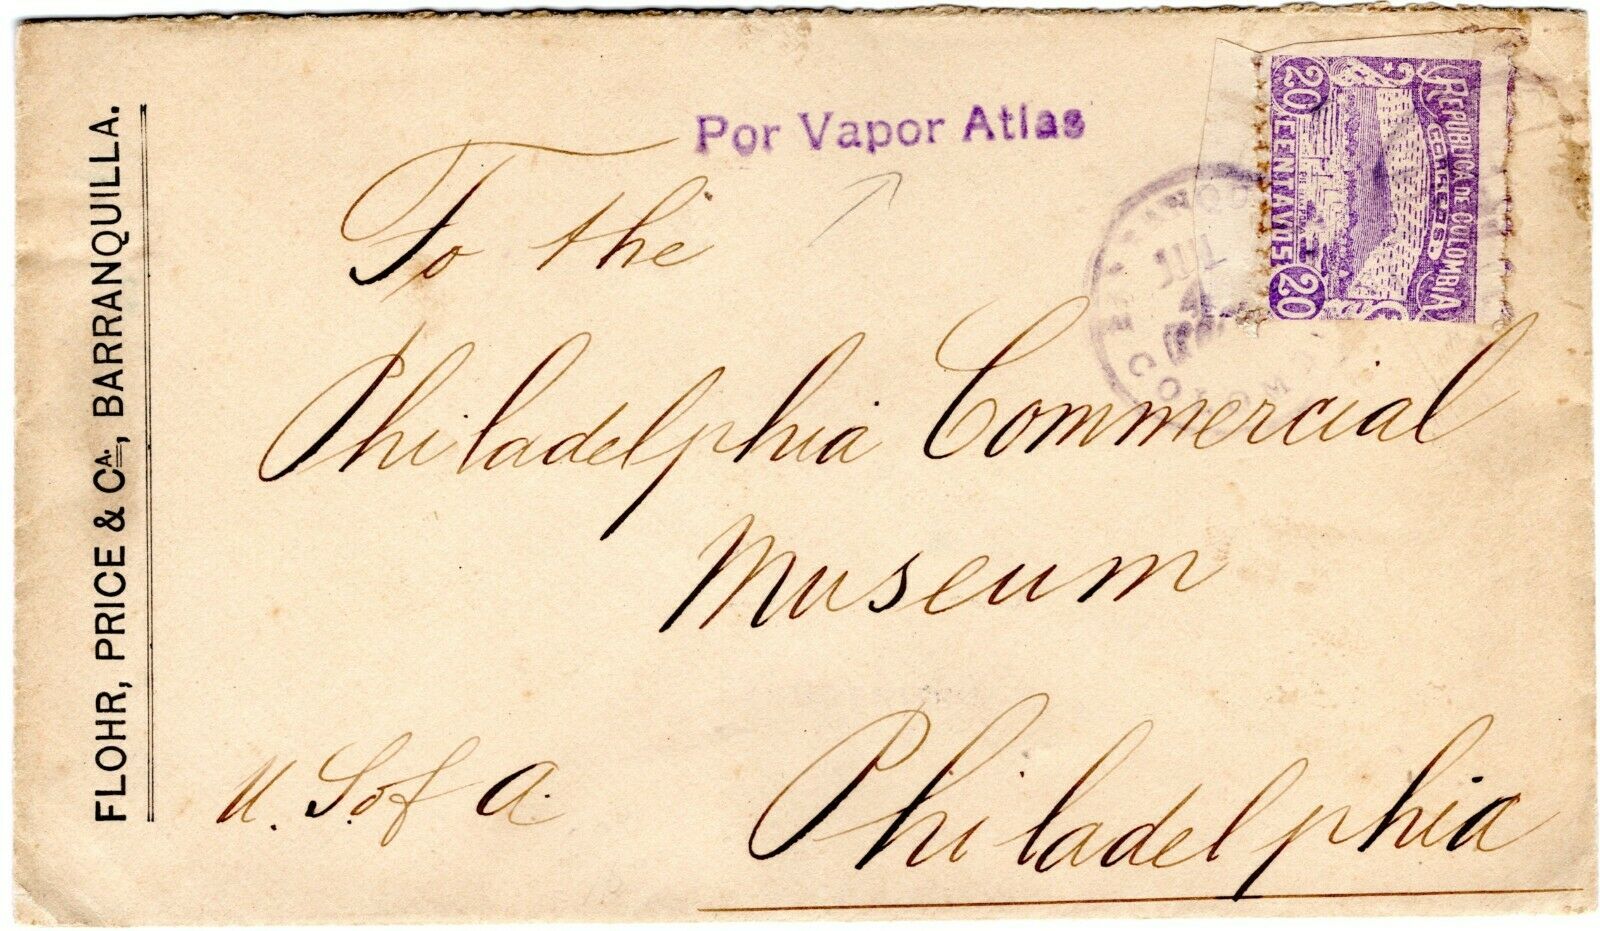 FLOHR, PRICE & CA., BARRANQUILLA.
Por Vapor Atlas
REPUBLICA DE COLOMBIA
CORREOS
20 CENTAVOS 20
JUL
4
COLOM
To the
Philadelphia Commercial
Museum
Philadelphia
U. S. of A.